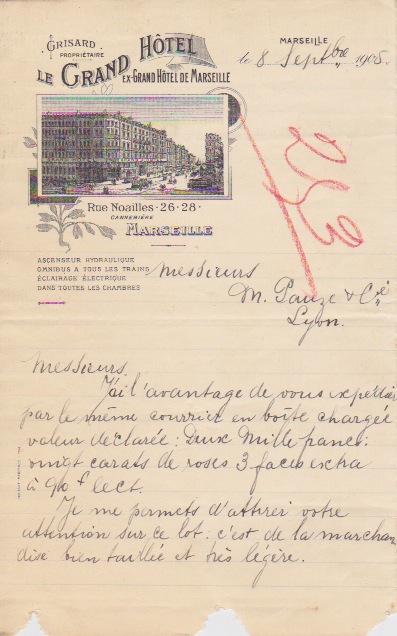 GRISARD
PROPRIÉTAIRE
LE GRAND HÔTEL
EX-GRAND HÔTEL DE MARSEILLE
MARSEILLE
le 8 Septbre 1908.
253
Rue Noailles · 26 · 28 ·
CANNEBIÈRE
MARSEILLE
ASCENSEUR HYDRAULIQUE
OMNIBUS A TOUS LES TRAINS
ÉCLAIRAGE ÉLECTRIQUE
DANS TOUTES LES CHAMBRES
Messieurs
M. Pauze & Cie
Lyon.
Messieurs,
J'ai l'avantage de vous expédier
par le même courrier en boîte chargée
valeur déclarée : Deux Mille francs :
vingt carats de roses 3 faces extra
à 90 f le ct.
Je me permets d'attirer votre
attention sur ce lot. c'est de la marchan
dise bien taillée et très légère.